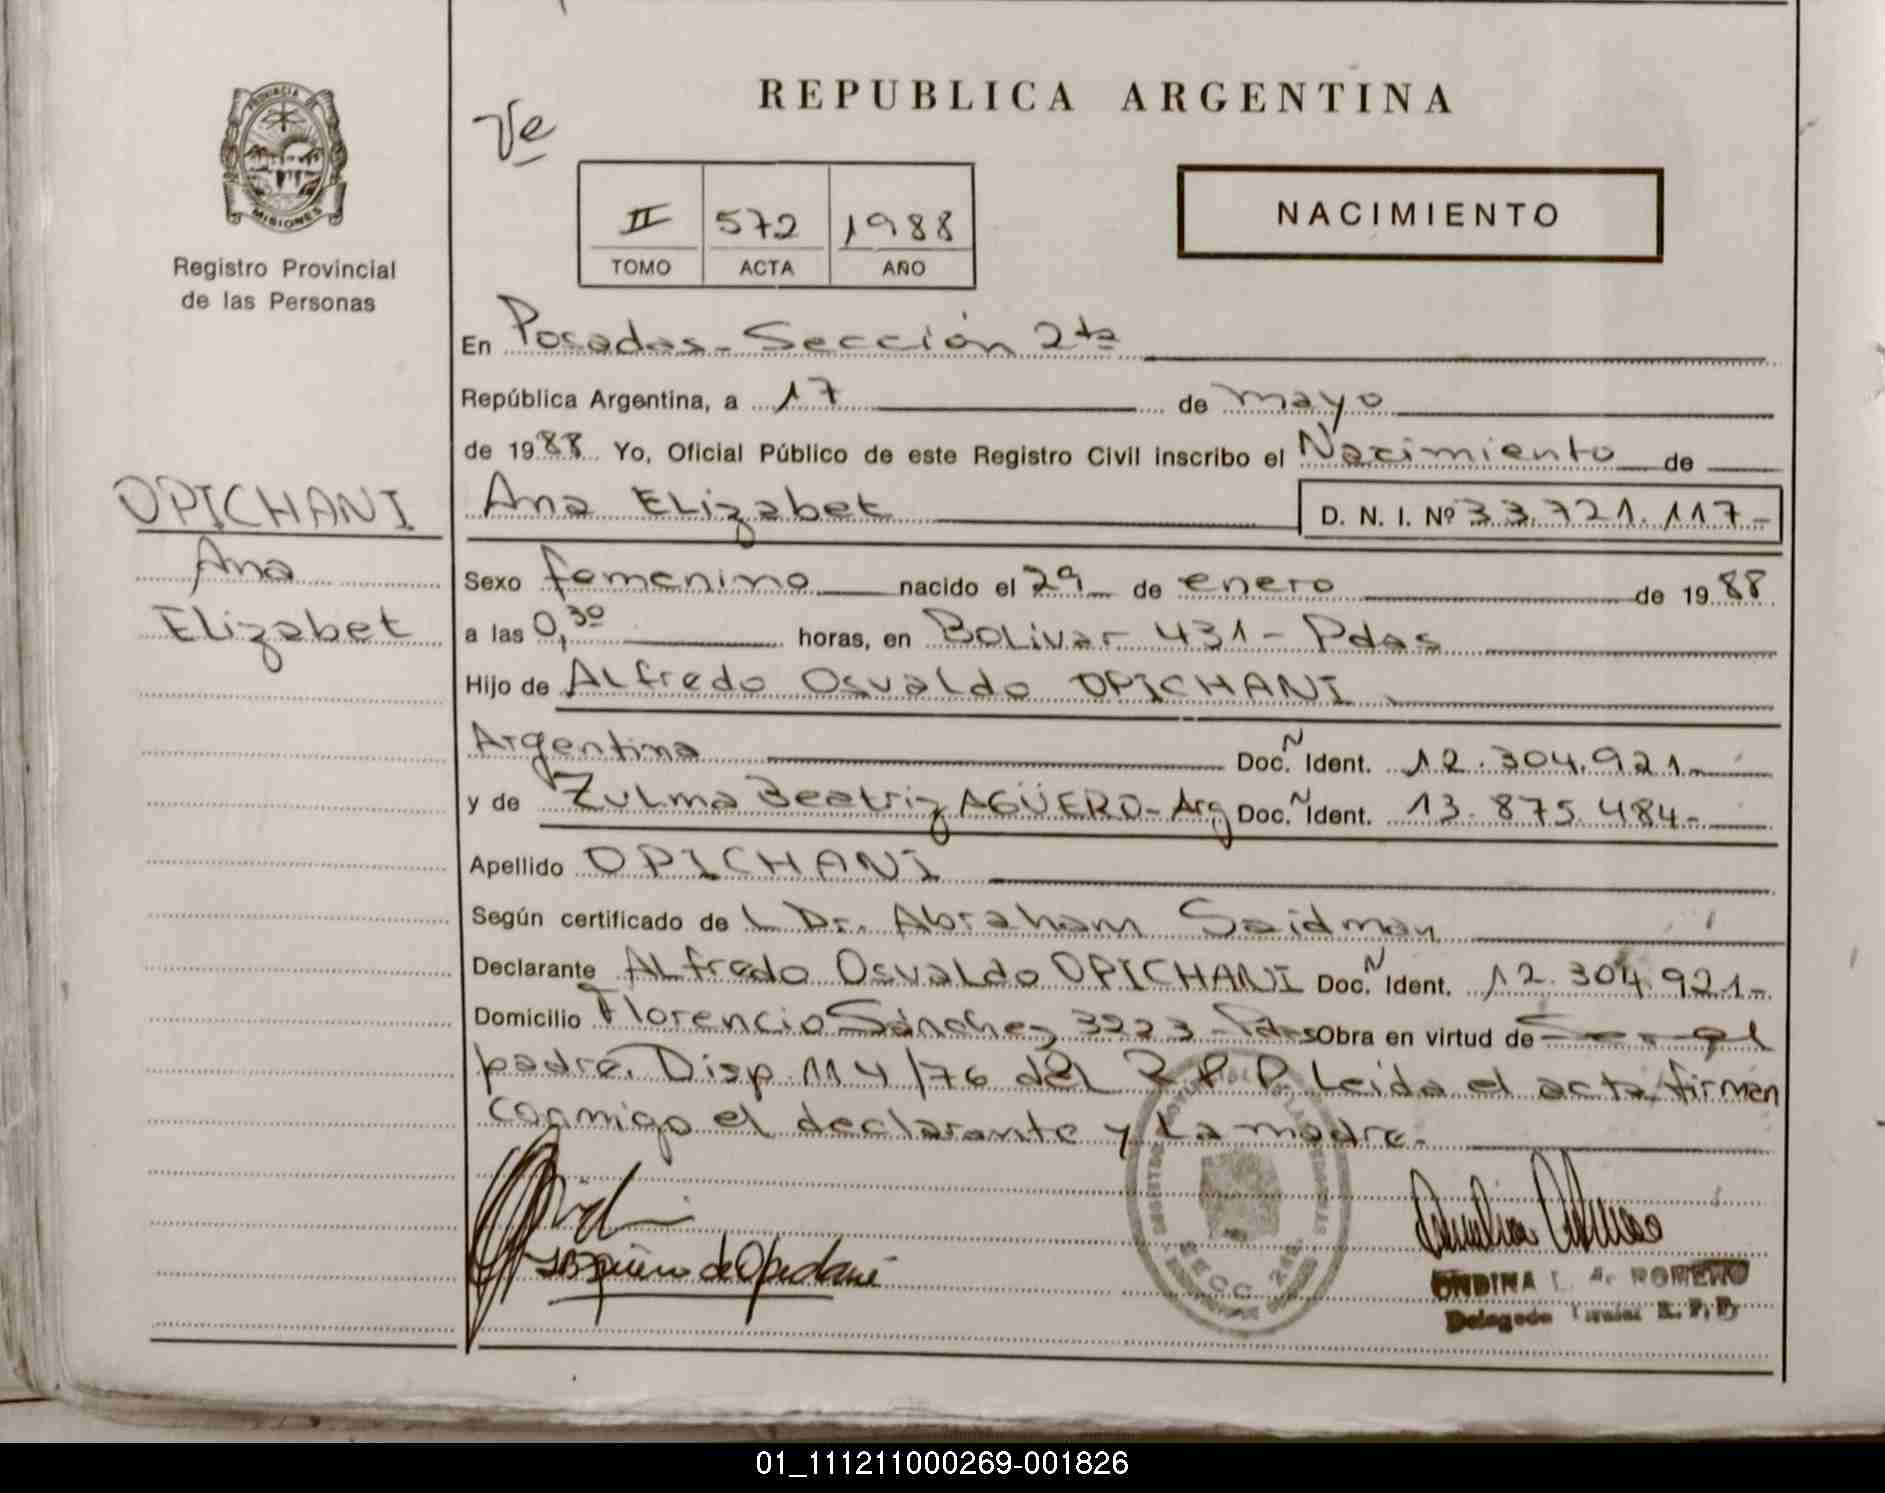 PROVINCIA DE
MISIONES
Registro Provincial
de las Personas
OPICHANI
Ana
Elizabet
REPUBLICA ARGENTINA
Ve
II 572 1988
TOMO ACTA AÑO
NACIMIENTO
En Posadas - Sección 2ta
República Argentina, a 17 de mayo
de 1988 Yo, Oficial Público de este Registro Civil inscribo el Nacimiento de
Ana ELizabet D. N. I. Nº 33.721.117-
Sexo femenino nacido el 29 de enero de 1988
a las 0,30 horas, en BoLivar 431 - Pdas
Hijo de ALfredo OsvaLdo OPICHANI
Argentina Doc. Ident. 12.304.921-
y de ZuLma Beatriz AGÜERO - Arg Doc. Ident. 13.875.484-
Apellido OPICHANI
Según certificado de L Dr. Abraham Saidman
Declarante ALfredo OsvaLdo OPICHANI Doc. Ident. 12.304.921-
Domicilio Florencio Sánchez 3223 - Pdas Obra en virtud de Ser el
padre. Disp 114/76 del R.P.P. Leida el acta, firman
conmigo el declarante y La madre.
de Opichani
SECC. 2da.
ONDINA L. A. ROMERO
Delegada R. P. P.
01_111211000269-001826